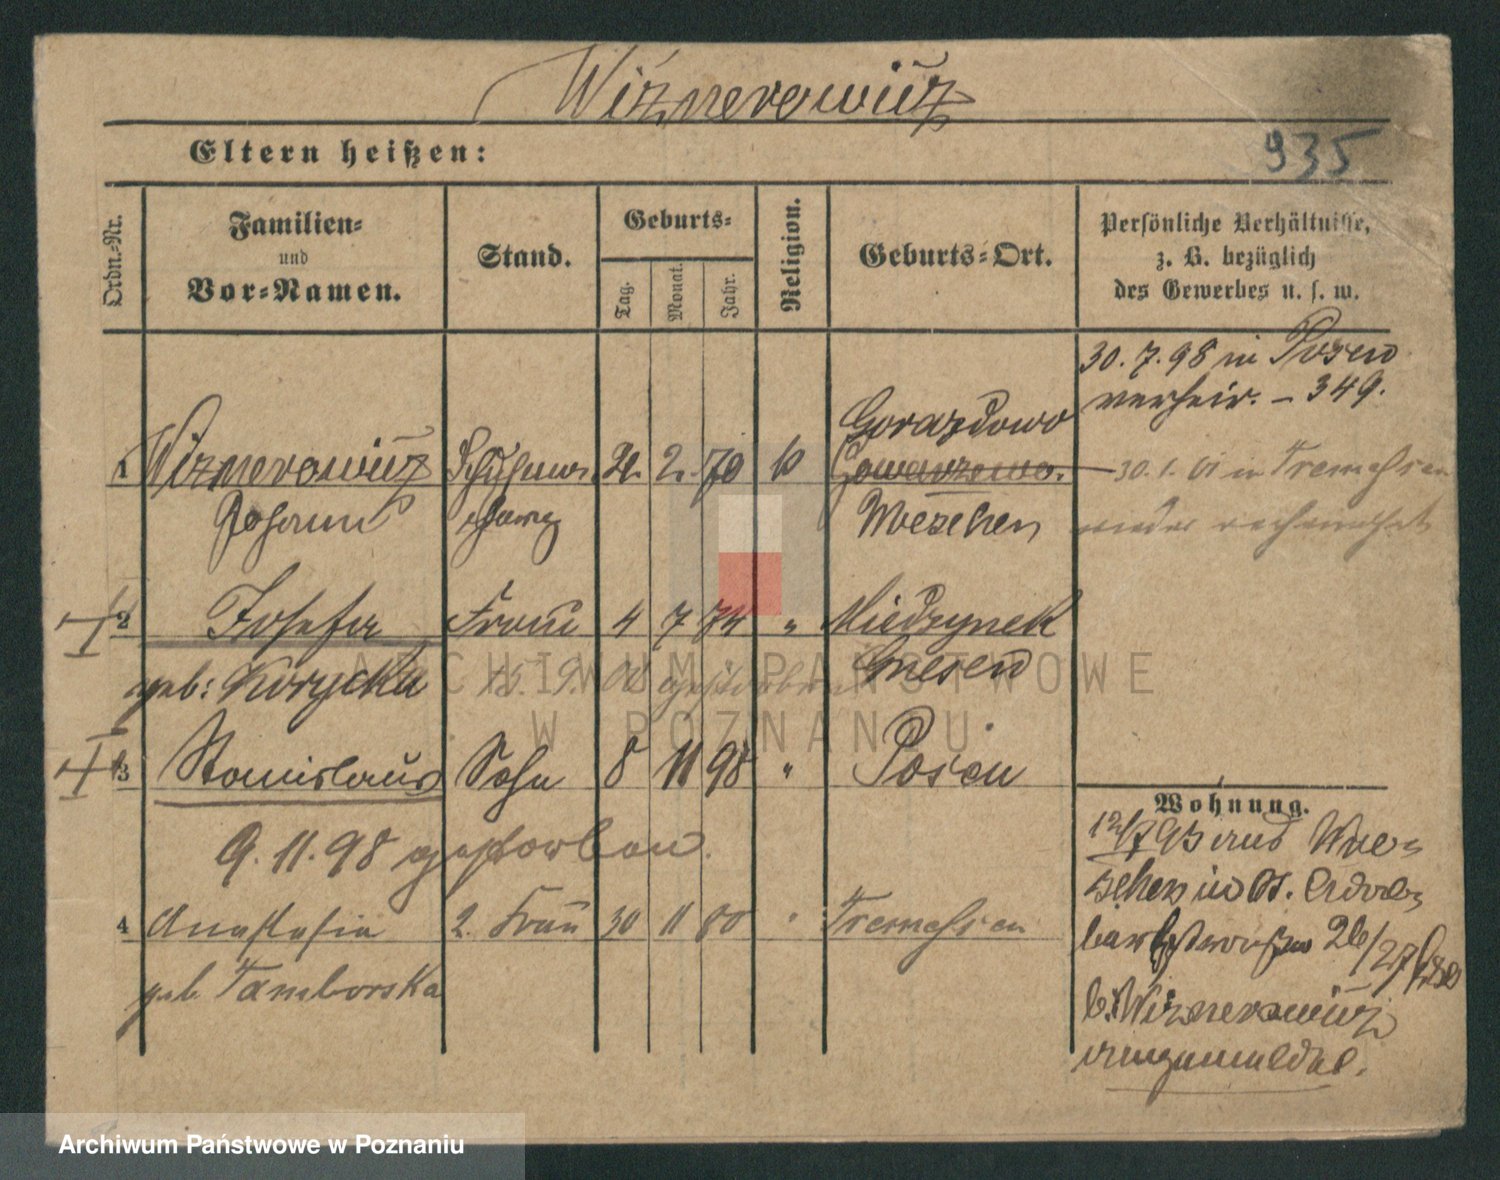 Wiznerowicz
Eltern heißen:
935
Ordn.-Nr.
Familien-
und
Vor-Namen.
Stand.
Geburts-
Tag.
Monat.
Jahr.
Religion.
Geburts-Ort.
Persönliche Verhältnisse,
z. B. bezüglich
des Gewerbes u. s. w.
30. 7. 98 in Posen
verheir. - 349.
1 Wiznerowicz 2. 70 Gorazdowo
Johann Wreschen
30. 1. 01 in Tremessen
wieder
2 Josefa Frau 4 7 74 " Miedzynek
geb: Korycka Gnesen
15. 9. 00 gestorben
3 Stanislaus Sohn 8 11 98 " Posen
9. 11. 98 gestorben.
4 Anastasia 2. Frau 30 11 80 Tremessen
geb. Tamborska
Wohnung.
12/7 93 aus Wre-
schen in
26/27
b. Wiznerowicz
angemeldet.
ARCHIWUM PAŃSTWOWE
W POZNANIU
Archiwum Państwowe w Poznaniu